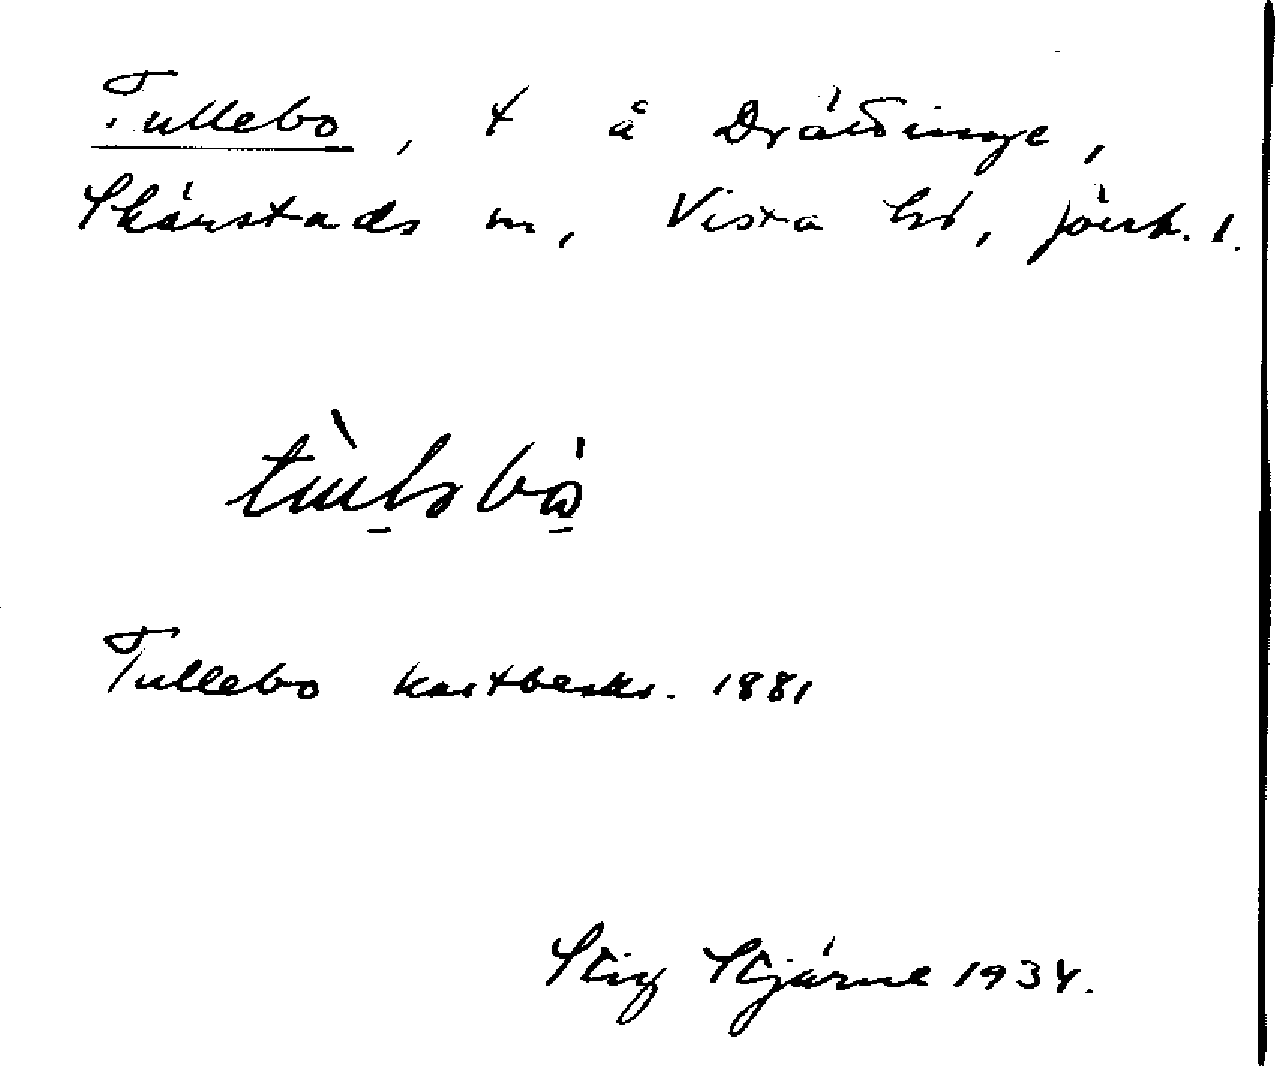 Tullebo, t å Drättinge,
Skärstads sn, Vista hd, Jönk. l.
Tullebo kartbeskr. 1881
Stig Stjärne 1934.